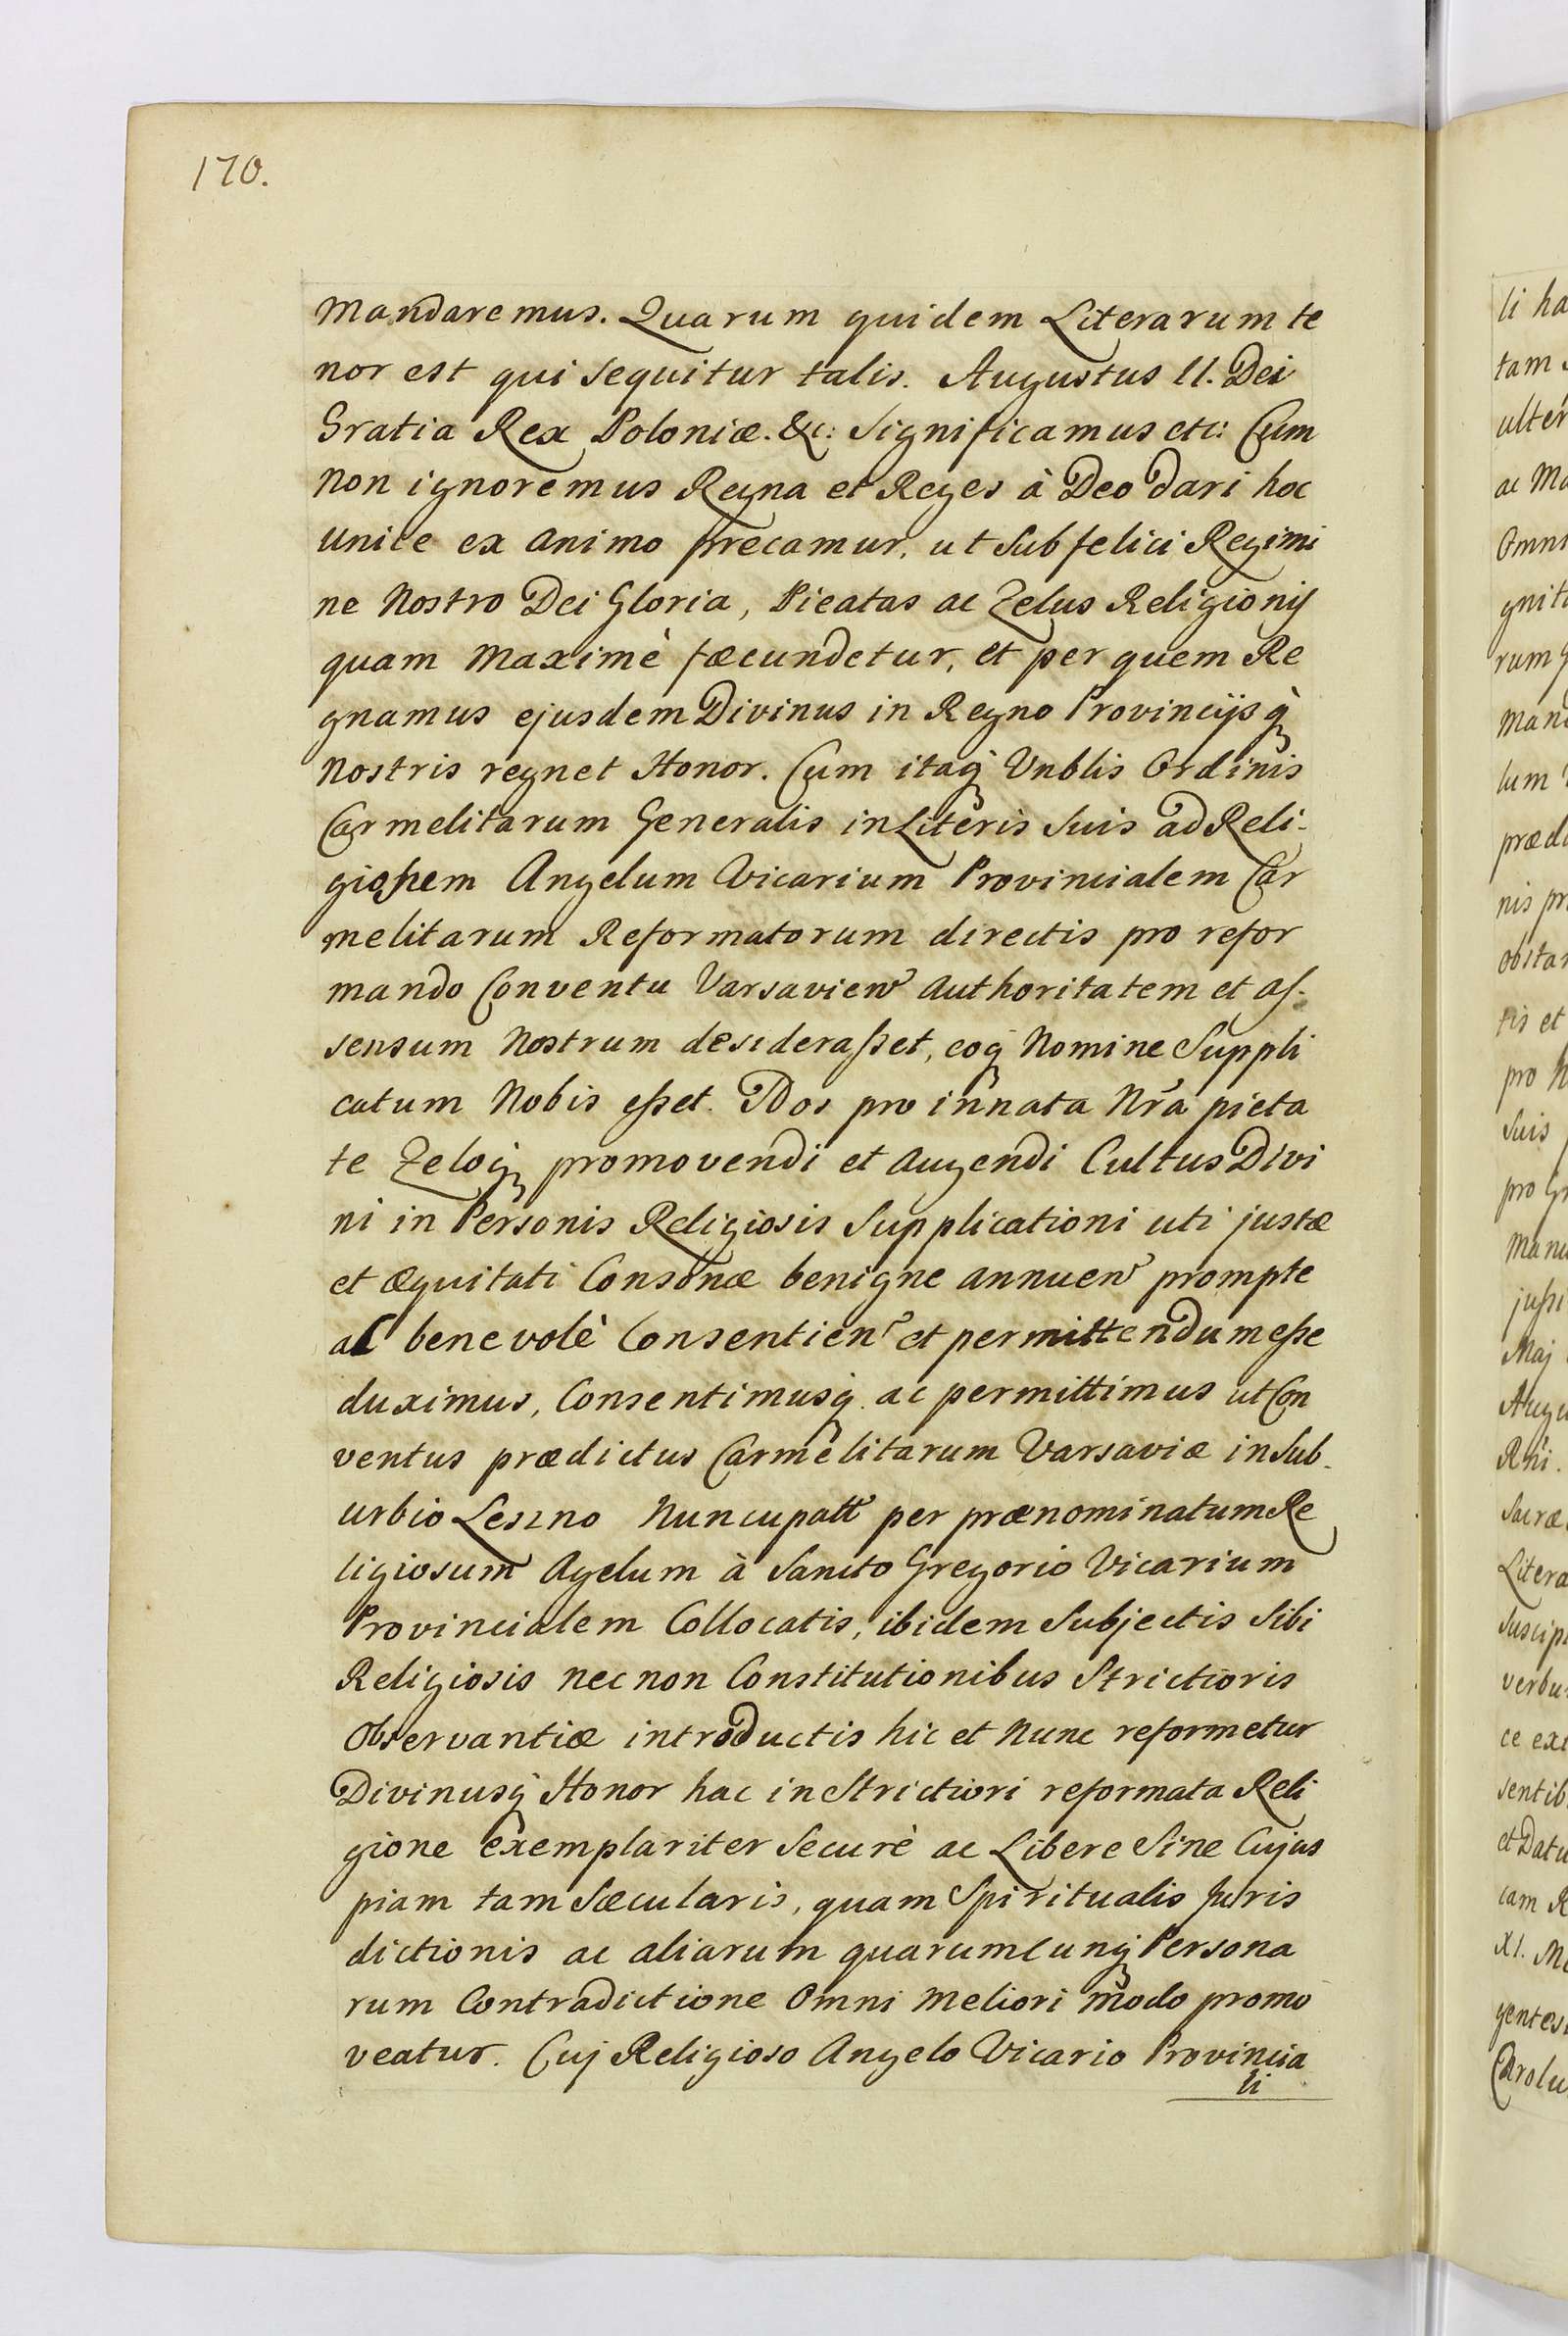 170.
Mandaremus. Quarum quidem Literarum te
nor est qui sequitur talis. Augustus II. Dei
Gratia Rex Poloniæ. &c: Significamus etc: Cum
Non ignoremus Regna et Reges à Deo dari hoc
Unice ex animo precamur, ut Sub felici Regimi
ne Nostro Dei Gloria, Pieatas ac Zelus Religionis
quam Maximè fæcundetur, et per quem Re
gnamus ejusdem Divinus in Regno Provincijsq̀
Nostris regnet Honor. Cum itaq̀ Vnblis Ordinis
Carmelitarum Generalis in Literis Suis ad Reli-
giossem Angelum Vicarium Provincialem Car
melitarum Reformatorum directis pro refor
mando Conventu Varsavien̄ Authoritatem et as-
sensum Nostrum desiderasset, eoq̀ Nomine Suppli
catum Nobis esset. Nos pro innata Nr̃a pieta
te Zeloq̀ promovendi et Augendi Cultus Divi
ni in Personis Religiosis Supplicationi uti justæ
et æquitati Consonæ benigne annuen̄ prompte
ac benevolè Consentien̄ et permittendum esse
duximus, Consentimusq̀ ac permittimus ut Con
ventus prædictus Carmelitarum Varsaviæ in Sub-
urbio Leszno Nuncupatt̄ per prænominatum Re
ligiosum Agelum à Sancto Gregorio Vicarium
Provincialem Collocatis, ibidem Subjectis Sibi
Religiosis nec non Constitutionibus Strictioris
Observantiæ introductis hic et Nunc reformetur
Divinusq̀ Honor hac in Strictiori reformata Reli
gione exemplariter Securè ac Libere Sine Cujus
piam tam Sæcularis, quam Spiritualis Juris
dictionis ac aliarum quarumcunq̀ Persona
rum Contradictione Omni Meliori modo promo
veatur. Cuj Religioso Angelo Vicario Provincia
li